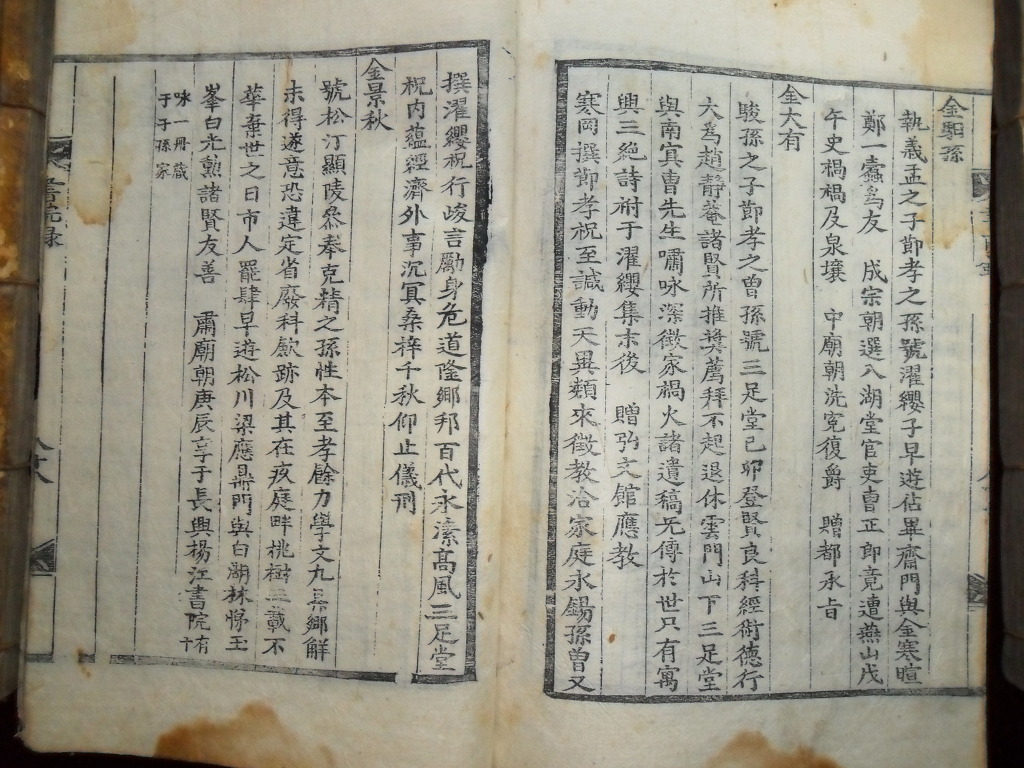 金馹孫
執義孟之子節孝之孫號濯纓子早遊佔畢齋門與金寒暄
鄭一蠹爲友 成宗朝選入湖堂官吏曹正郎竟遭燕山戊
午史禍禍及泉壤 中廟朝洗寃復爵 贈都承旨
金大有
駿孫之子節孝之曾孫號三足堂己卯登賢良科經術德行
大爲趙靜菴諸賢所推奬薦拜不起退休雲門山下三足堂
與南㝠曺先生嘯咏深徵家禍火諸遺稿旡傳於世只有寓
興三絶詩附于濯纓集末後 贈弘文館應教
寒岡撰節孝祝至諴動天異類來徵教洽家庭永錫孫曾又
撰濯纓祝行峻言勵身危道隆鄉邦百代永溸高風三足堂
祝內蘊經濟外事沉㝠桑梓千秋仰止儀刑
金景秋
號松汀顯陵叅奉克精之孫性本至孝餘力學文九㒷鄉觧
未得遂意恐違定省廢科歛跡及其在疚庭畔桃樹三載不
華棄世之日市人罷肆早遊松川梁應鼎門與白湖林悌玉
峯白光勲諸賢友善 肅廟朝庚辰享于長興楊江書院有
咏一冊藏
于子孫家